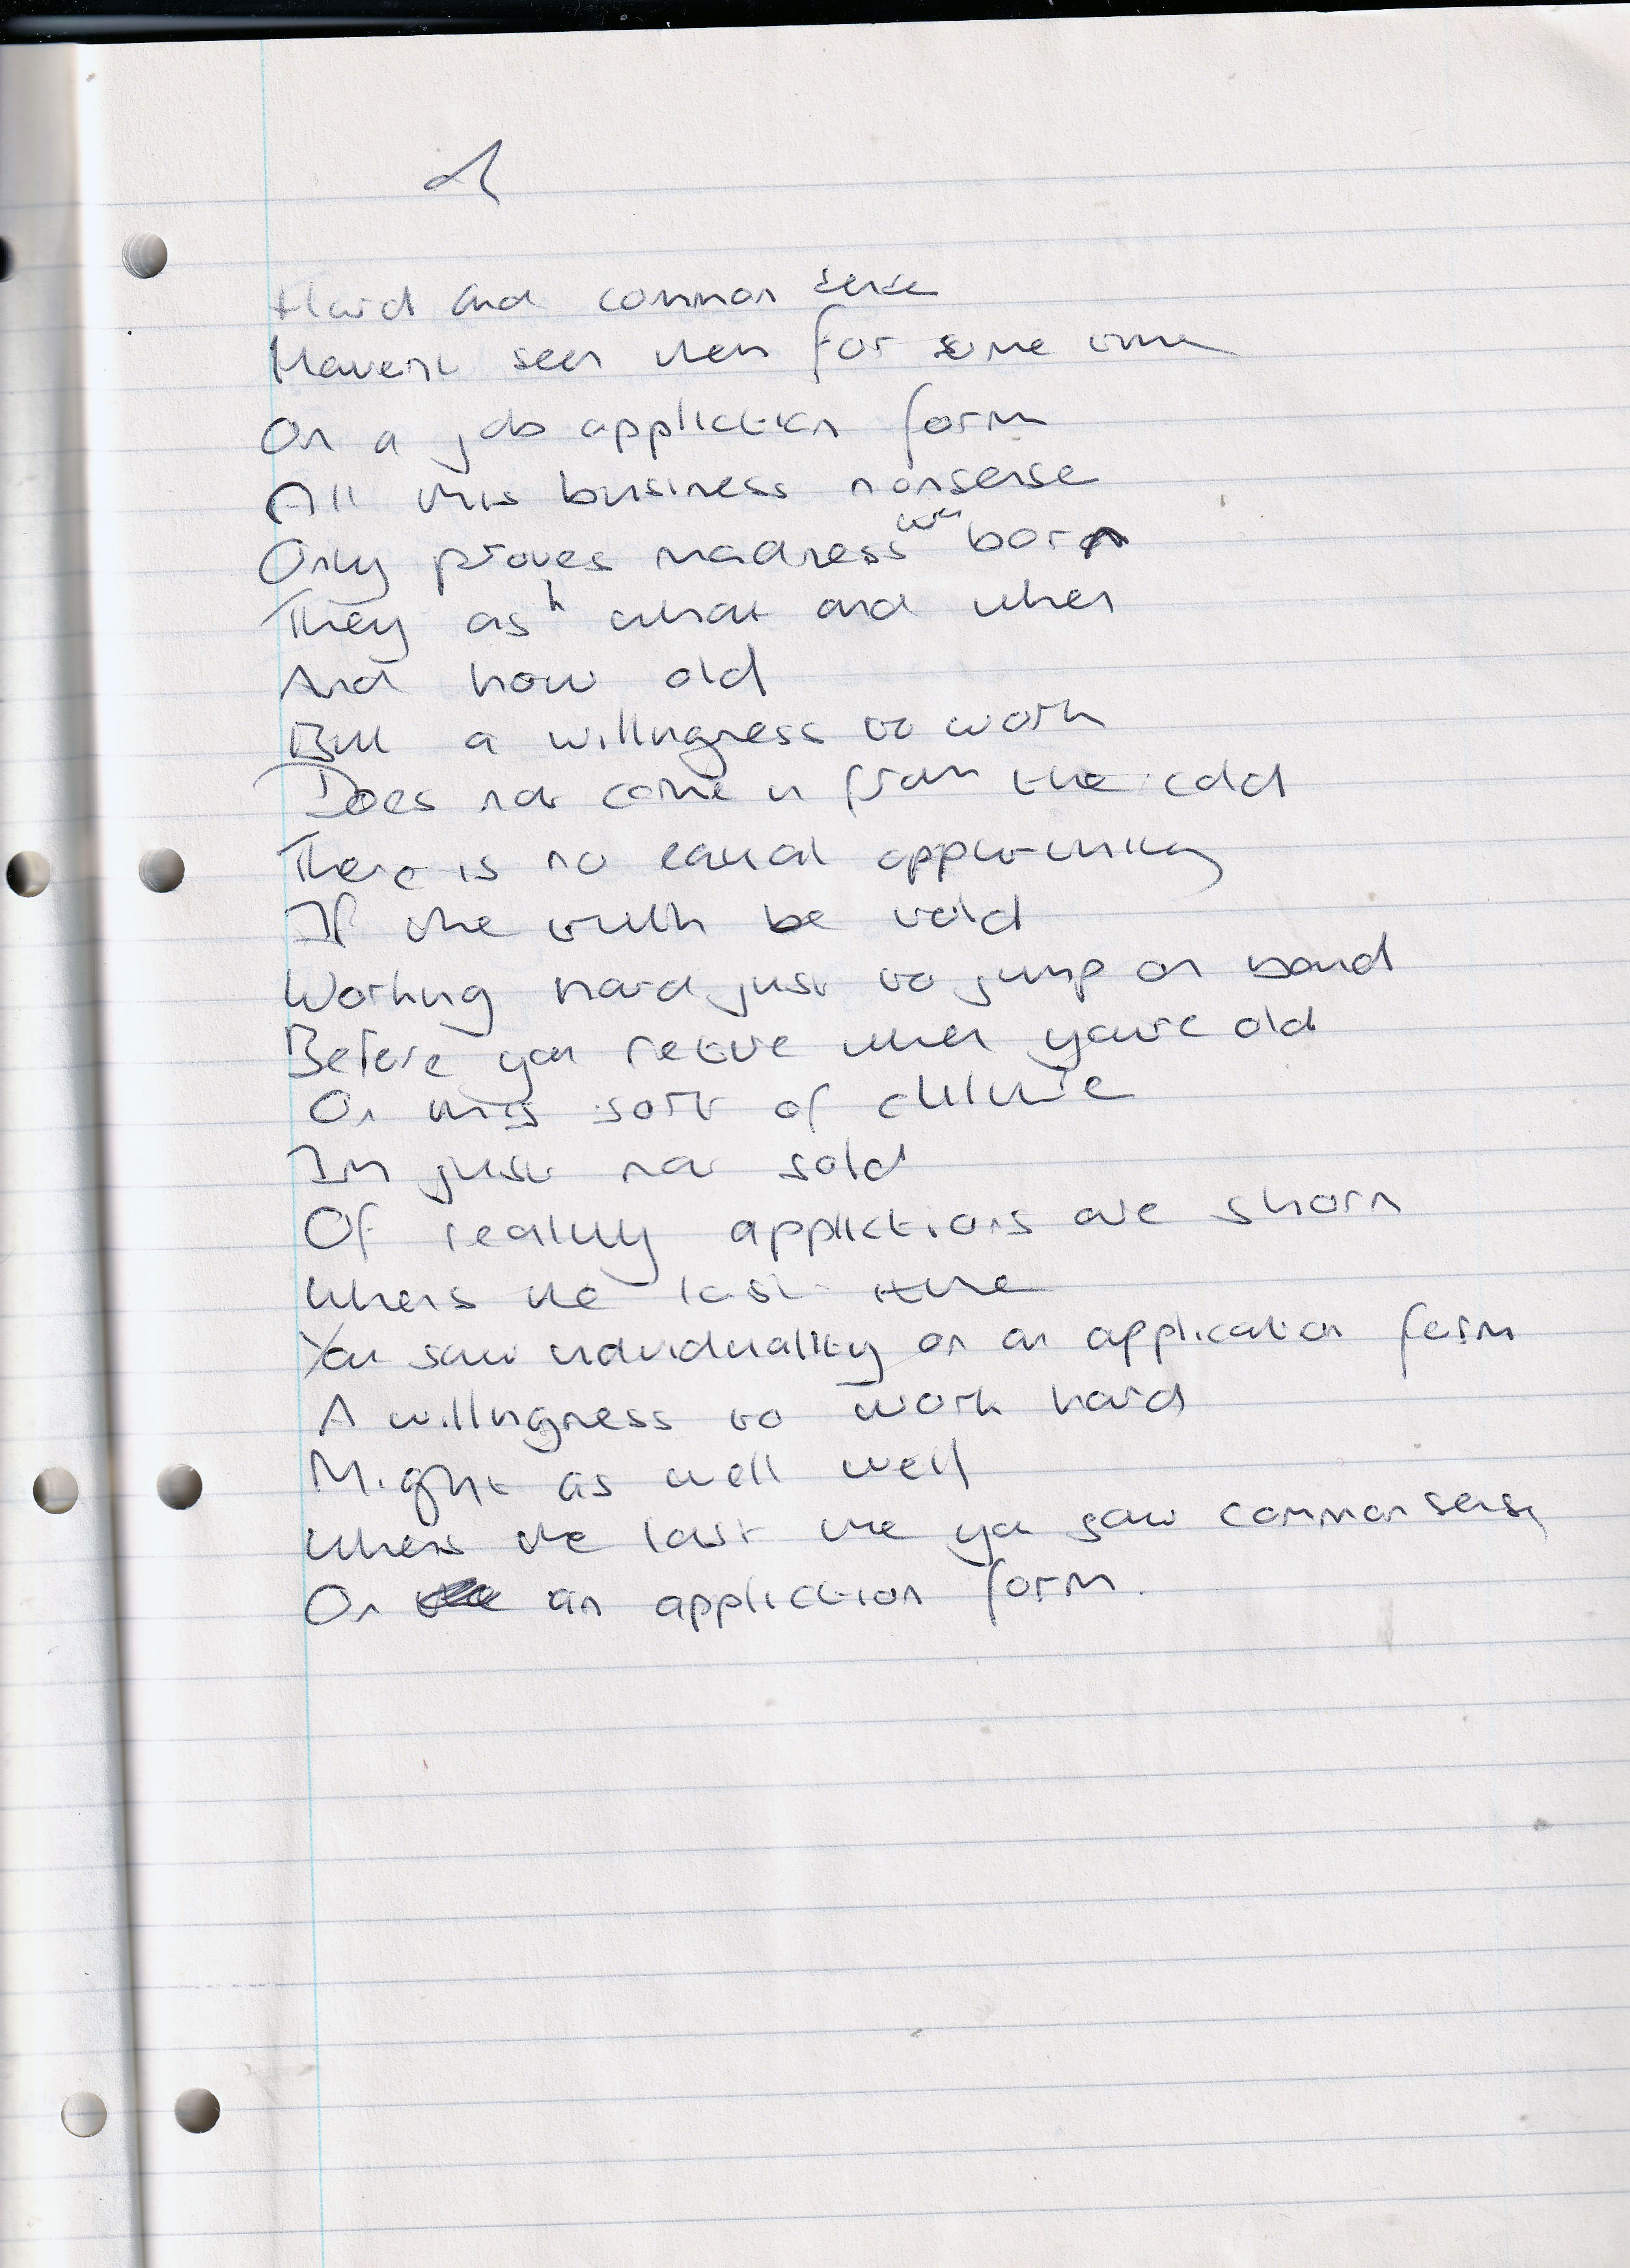 Hard and common sense
Havent seen them for some time
On a job appliction form
All this business nonsense
Only proves madness was born
They ask what and when
And how old
But a willingness to work
Does not come in from the cold
There is no equal oppurtunity
If the truth be told
Working hard just to jump on board
Before you retire when youre old
On this sort of culture
Im just not sold
Of reality applictions are shorn
Whens the last time
You saw individuality on an application form
A willingness to work hard
Might as well well
Whens the last time you saw common sense
On an appliction form.